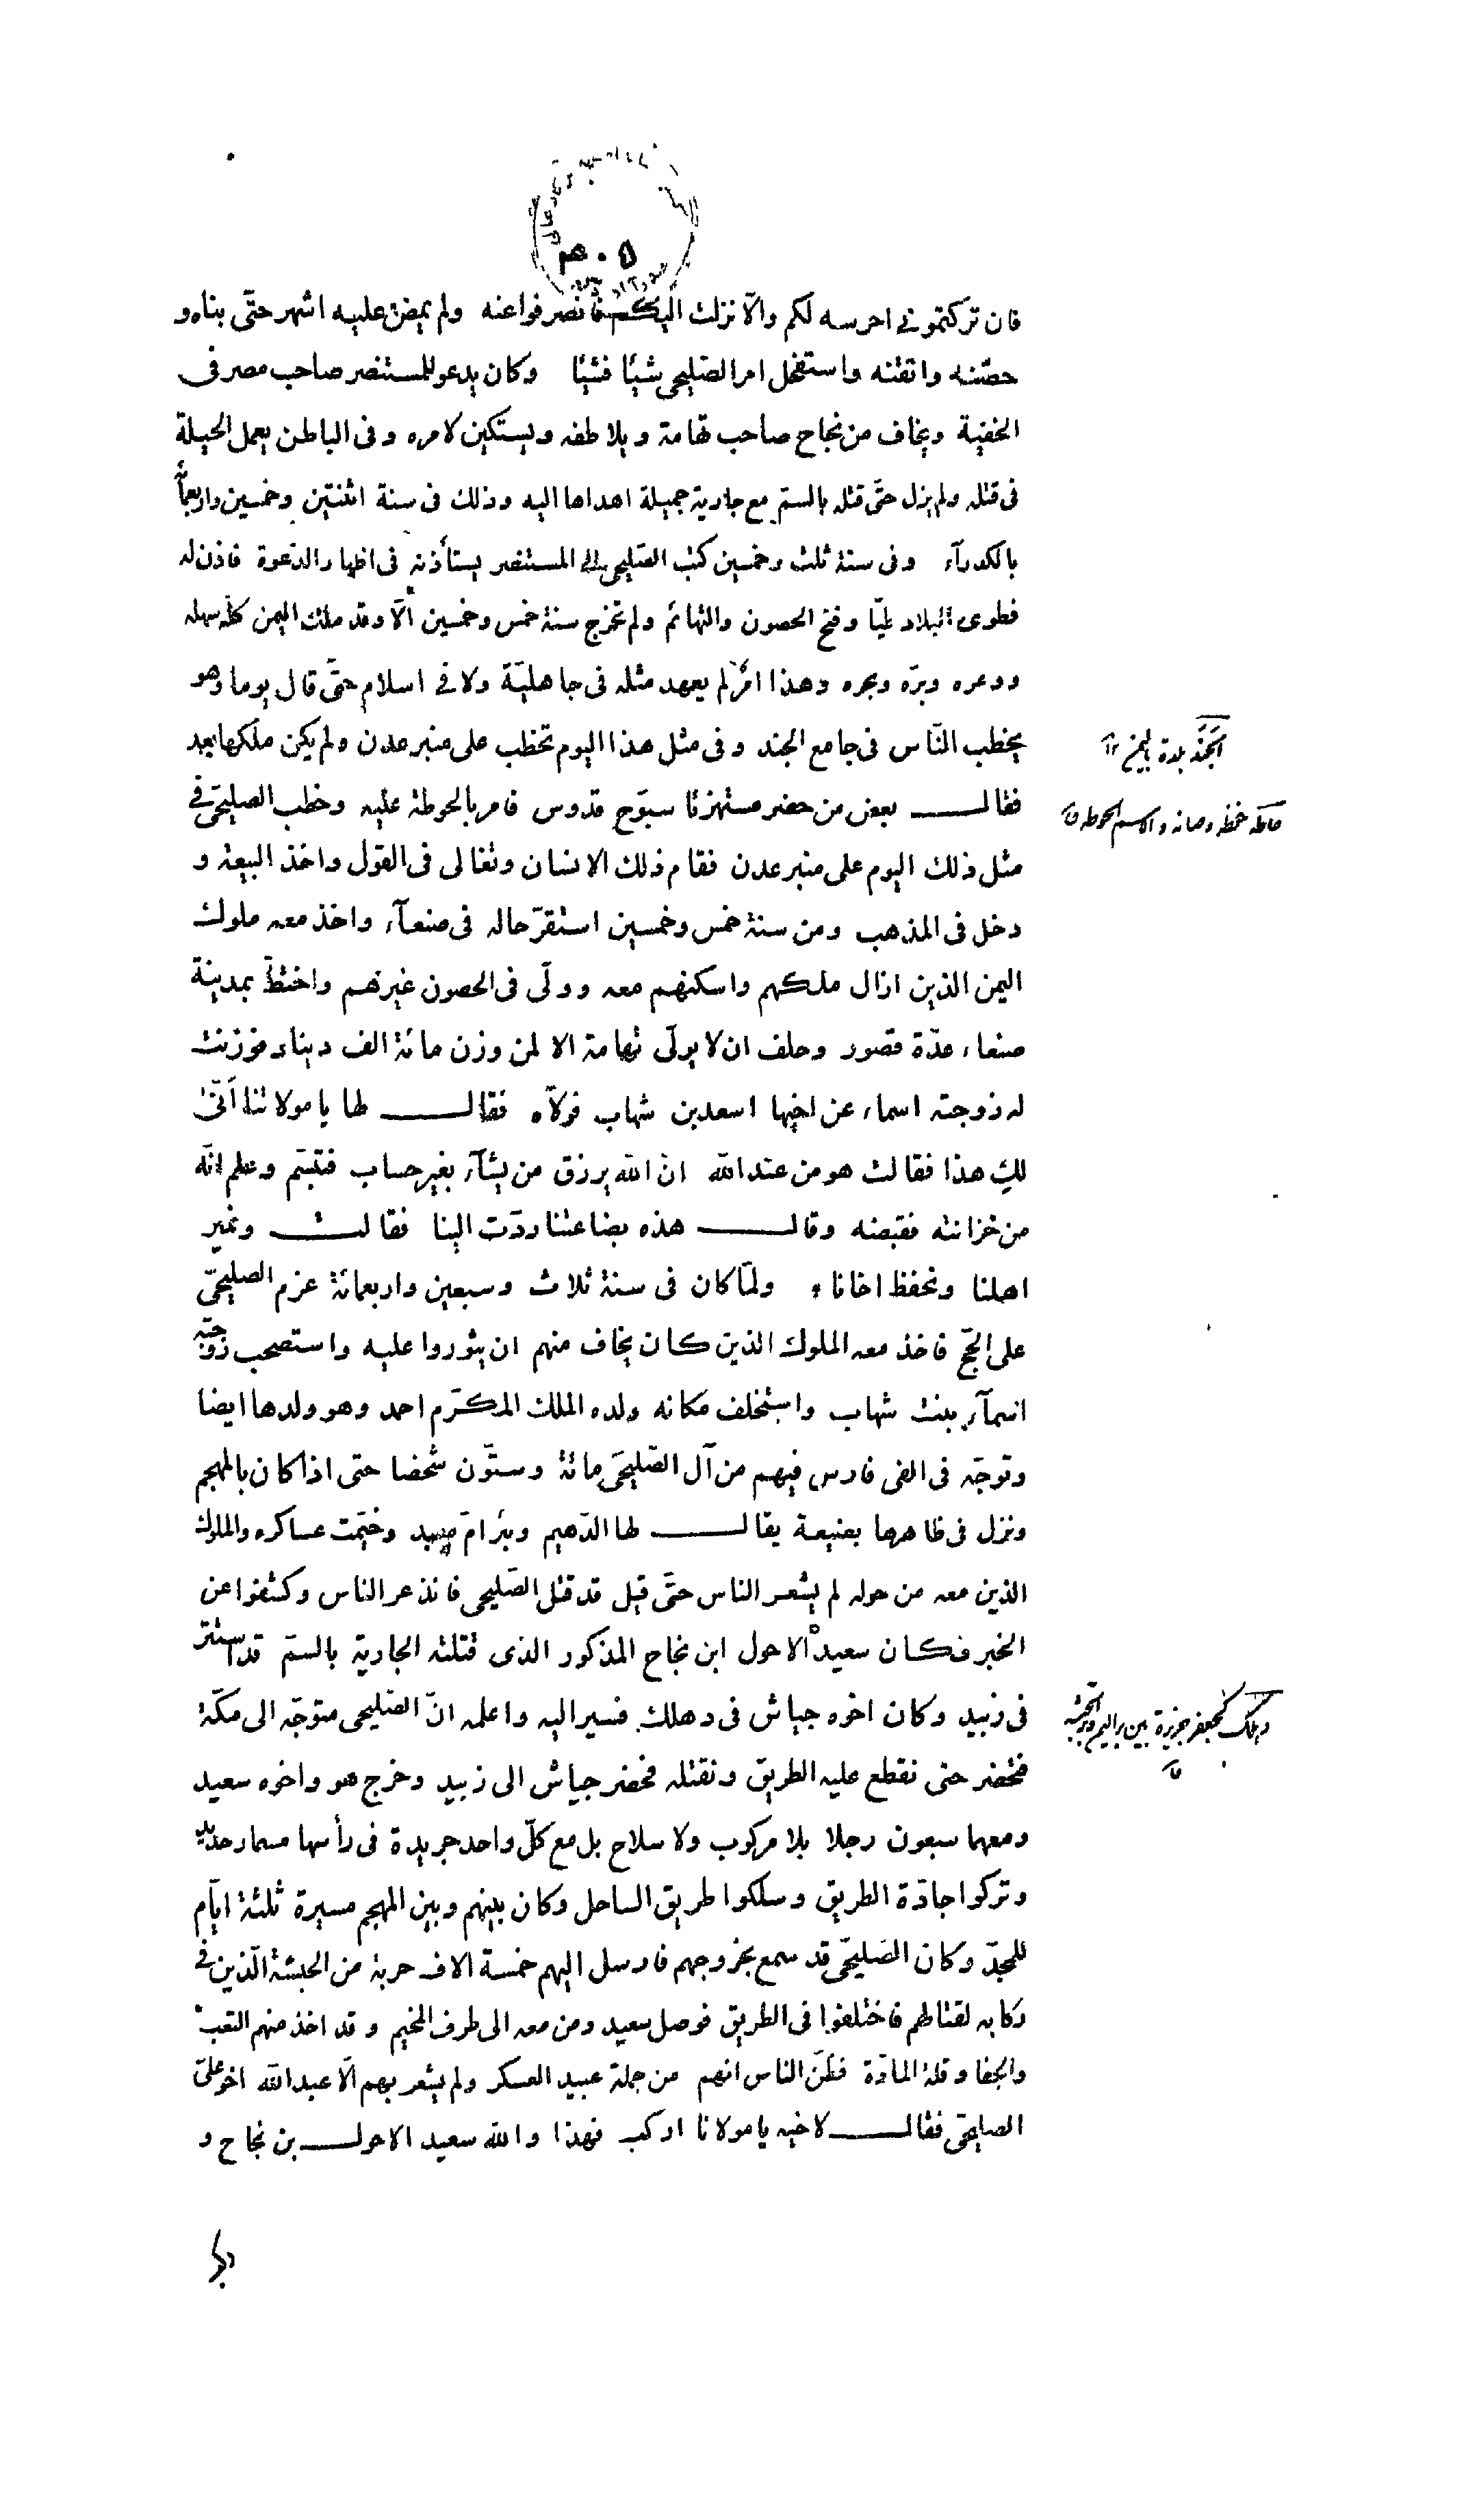 فان تركتموني احرسه لكم والّا نزلت اليكم فانصرفوا عنه ولم يمض عليه اشهر حتّى بناه و
حصّنه واتقنه واستفحل امر الصّليحى شيئا فشيئا وكان يدعو للمستنصر صاحب مصر فى
الخفية ويخاف من نجاح صاحب تهامة ويلاطفه ويستكين لامره وفى الباطن يعمل الحيلة
فى قتله ولم يزل حتّى قتله بالسمّ مع جارية جميلة اهداها اليه وذلك فى سنة اثنتين وخمسين واربعمأة
بالكدرآء وفى سنة ثلث وخمسين كتب الصّليحى الى المستنصر يستأذنه فى اظهار الدّعوة فاذن له
فطوى البلاد طيّا وفتح الحصون والتهائم ولم تخرج سنة خمس وخمسين الّا وقد ملك اليمن كلّه سهله
ووعره وبرّه وبحره وهذا امرٌ لم يعهد مثله فى جاهليّة ولا فى اسلام حتّى قال يوما وهو
يخطب النّاس فى جامع الجند وفى مثل هذا اليوم نخطب على منبر عدن ولم يكن ملكها بعد
فقال بعض من حضر مستهزئا سبّوح قدوس فامر بالحوطة عليه وخطب الصليحىّ فى
مثل ذلك اليوم على منبر عدن فقام ذلك الانسان وتغالى فى القول واخذ البيعة و
دخل فى المذهب ومن سنة خمس وخمسين استقرّ حاله فى صنعآء واخذ معه ملوك
اليمن الذين ازال ملكهم واسكنهم معه وولّى فى الحصون غيرهم واختطّ بمدينة
صنعاء عدّة قصور وحلف ان لا يولّى تهامة الا لمن وزن مائة الف دينار فوزنت
له زوجته اسماء عن اخيها اسعد بن شهاب فولّاه فقال لها يا مولاتنا أنّى
لكِ هذا فقالت هو من عند الله انّ الله يرزق من يشآء بغير حساب فتبسّم وعلم انّه
من خزانته فقبضه وقال هذه بضاعتنا ردّت الينا فقالت ونمير
اهلنا ونحفظ اخانا ولمّا كان فى سنة ثلاث وسبعين واربعمائة عزم الصليحىّ
على الحجّ فاخذ معه الملوك الذين كان يخاف منهم ان يثوروا عليه واستصحب زوجته
اسمآء بنت شهاب واستخلف مكانه ولده الملك المكرّم احمد وهو ولدها ايضا
وتوجّه فى الفى فارس فيهم من آل الصّليحى مائة وستّون شخصا حتى اذا كان بالمهجم
ونزل فى ظاهرها بضيعة يقال لها الدّهيم وبئر امّ معبد وخيّمت عساكره والملوك
الذين معه من حوله لم يشعر الناس حتّى قيل قد قتل الصّليحى فانذعر الناس وكشفوا عن
الخبر فكان سعيد الاحول ابن نجاح المذكور الذى قتلته الجارية بالسمّ قد استتر
فى زبيد وكان اخوه جياش فى دهلك فسير اليه واعلمه انّ الصّليحى متوجّه الى مكّة
فتحضر حتى نقطع عليه الطريق ونقتله فحضر جياش الى زبيد وخرج هو واخوه سعيد
ومعهما سبعون رجلا بلا مركوب ولا سلاح بل مع كلّ واحد جريدة فى رأسها مسمار حديد
وتركوا جادّة الطريق وسلكوا طريق الساحل وكان بينهم وبين المهجم مسيرة ثلثة ايّام
للمجدّ وكان الصّليحىّ قد سمع بخروجهم فارسل اليهم خمسة الاف حربة من الحبشة الّذين فى
ركابه لقتالهم فاختلفوا فى الطريق فوصل سعيد ومن معه الى طرف المخيم وقد اخذ منهم التعب
والحفا وقلة المادّة فظنّ الناس انهم من جملة عبيد العسكر ولم يشعر بهم الّا عبد الله اخو علىّ
الصليحىّ فقال لاخيه يا مولانا اركب فهذا والله سعيد الاحول بن نجاح و
الجَنَد بلدة باليمن ١٢
حاطه حفظه وصانه والاسم الحوطه ق
دهلك كجعفر جزيرة بين بر اليمن وبر الحبشه
ق